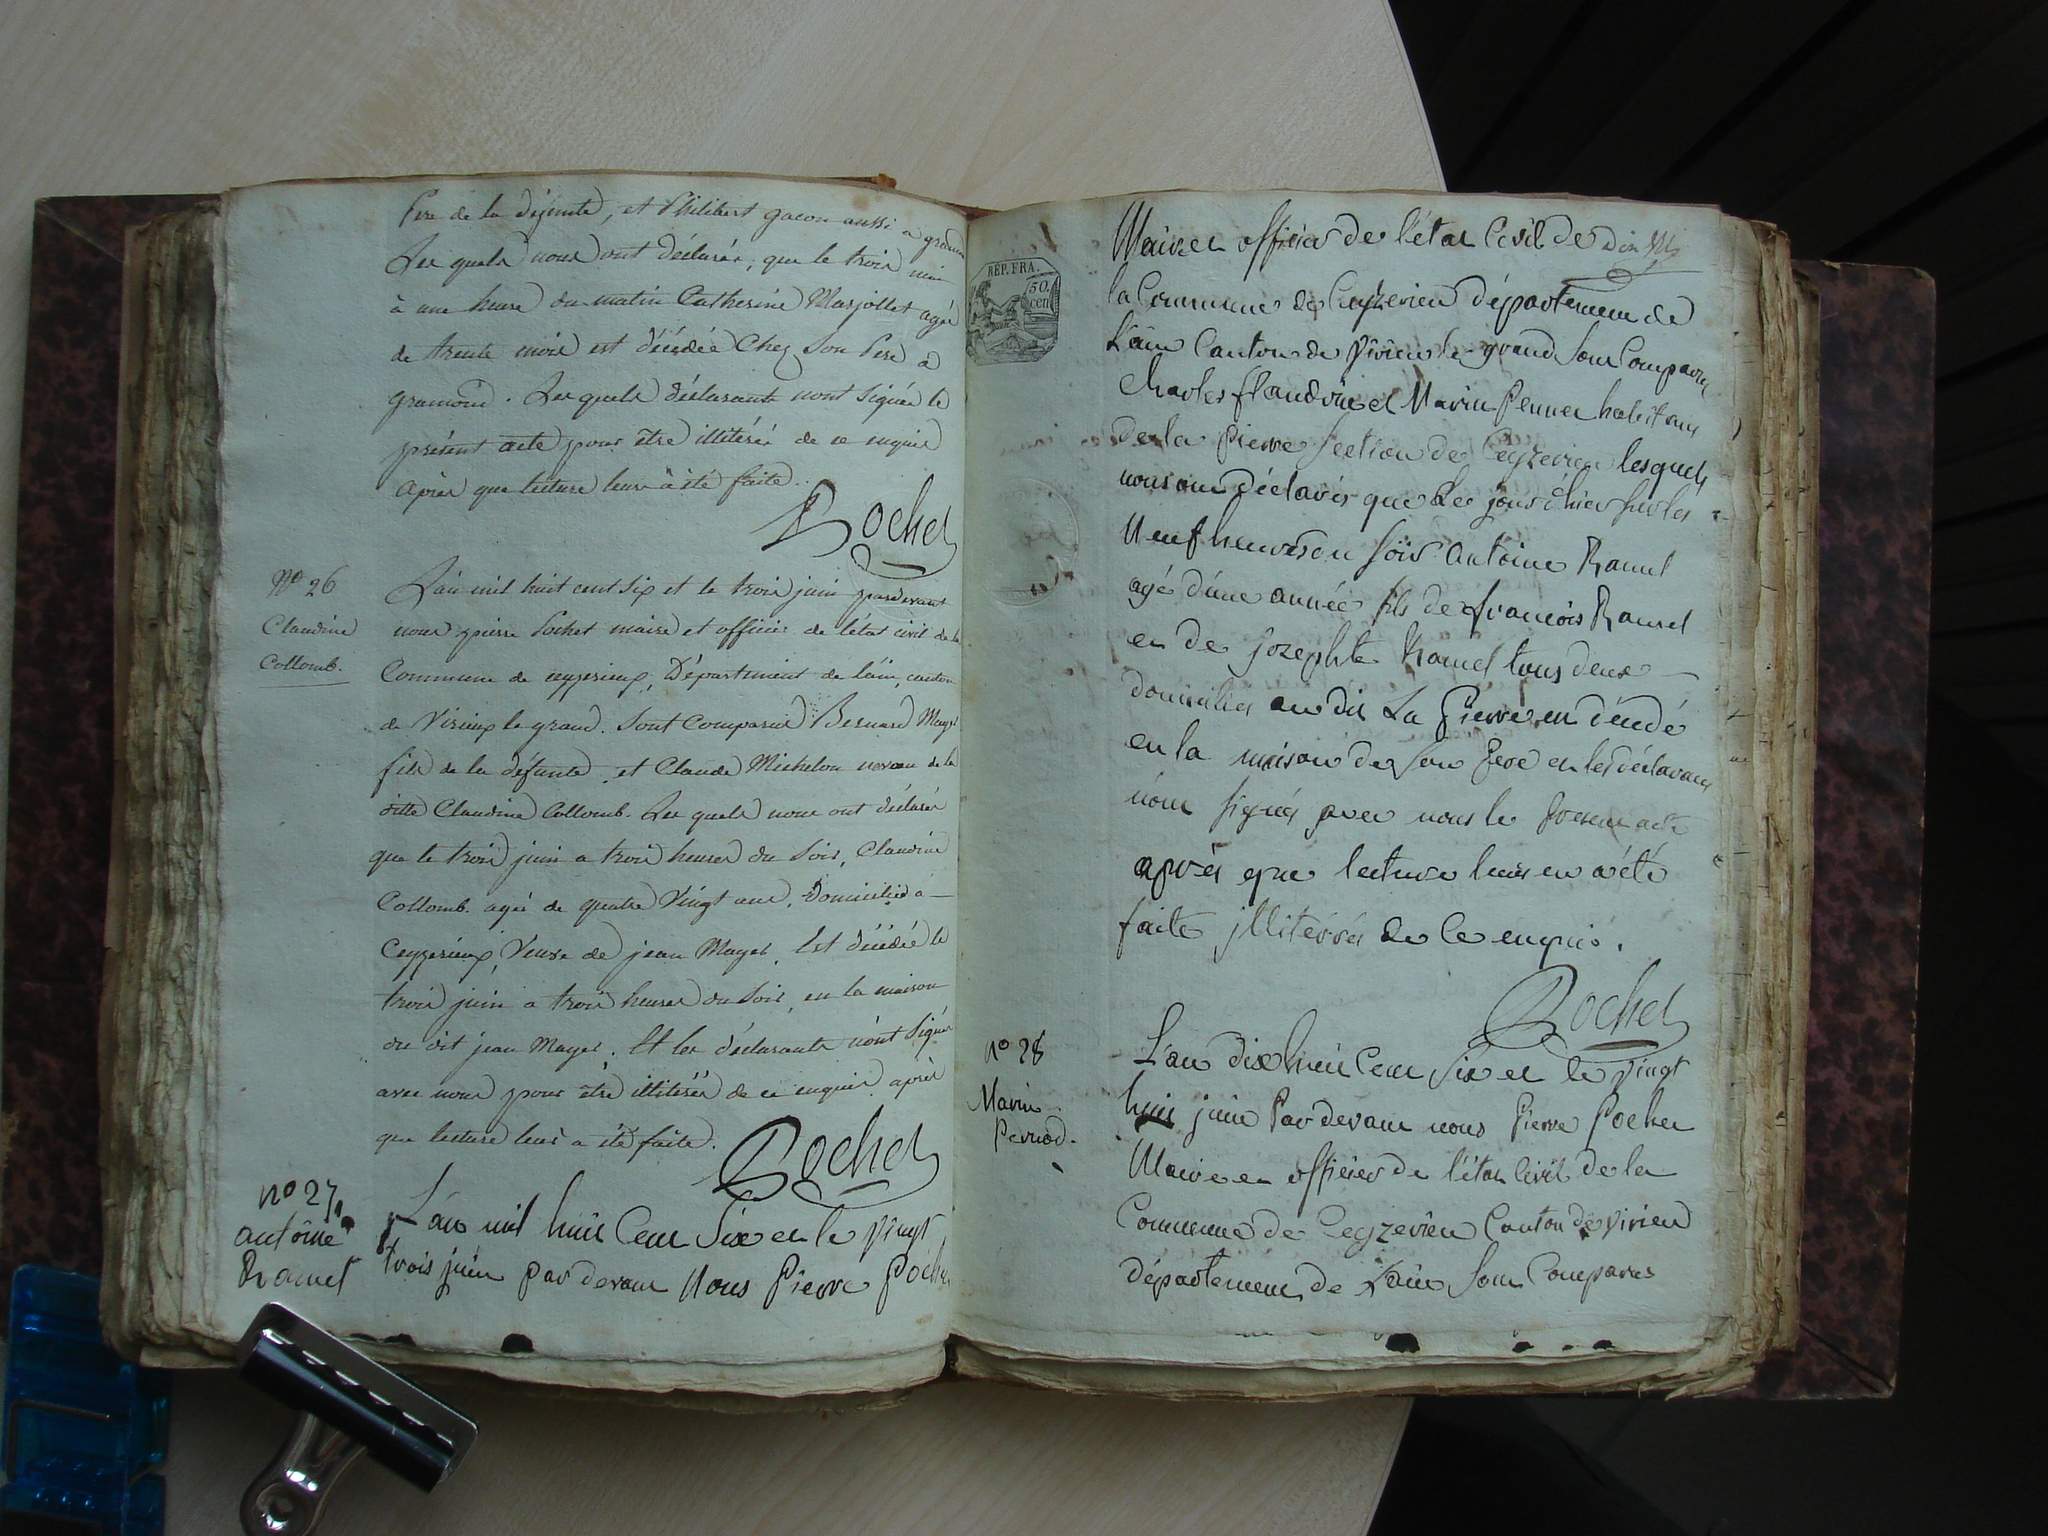 Pere de la défunte, et Philibert gacon aussi a gramond
Les quels nous ont déclarés, que le trois
à une heure du matin Catherine Marjollet agée
de trente mois est décédée Chez Son Pere a
gramond. Les quels déclarants n'ont Signée le
présent acte pour être illitérés de ce enquis
Après que lecture leur à été faite.
Rochet
N° 26
Claudine
Collomb.
L'an mil huit cent Six et le trois juin pardevant
nous pierre Rochet maire et officier de l'état civil de la
Commune de ceyzerieux, Département de l'ain, canton
de Virieux le grand. Sont Comparus Bernard Muget
fils de la défunte, et Claude Michelon neveau de la
ditte Claudine Collomb. Les quels nous ont déclarés
que le trois juin a trois heures du Soir, Claudine
Collomb. agée de quatre Vingt ans, Domicilié a
Ceyzerieux, Veuve de jean Muget, Est décédée le
trois juin a trois heures du Soir, en la maison
du dit jean Muget. Et les déclarants n'ont Signés
avec nous pour être illitérés de ce enquis après
que lecture leur a été faite.
Rochet
N° 27.
antoine
Ramel
L'an mil huit Cent Six et le Vingt
trois juin par devant Nous Pierre Rochet
REP. FRA.
50. cen
Maire et officier de l'état Civil de
la Commune de Ceyzerieu département de
L'ain Canton de Virieu le grand Sont Comparus
Charles flandrin et Marin Pernet habitans
de la Pierre Section de Ceyzerieu lesquels
nous ont déclarés que Le jour d'hier sur les
Neuf heures du soir antoine Ramel
agé d'une année fils de françois Ramel
et de Josephte Ramel tous deux
domiciliés au dit La Pierre est décédé
en la maison de Son Pere et les déclarans
n'ont signés avec nous le present acte
après que lecture leur en a été
faite illitérés de Ce enquis.
Rochet
N° 28
Marin
Pernod.
L'an dix huit Cent Six et le vingt
huit juin Par devant nous Pierre Rochet
Maire et officier de l'état Civil de la
Commune de Ceyzerieu Canton de Virieu
département de L'ain Sont Comparus